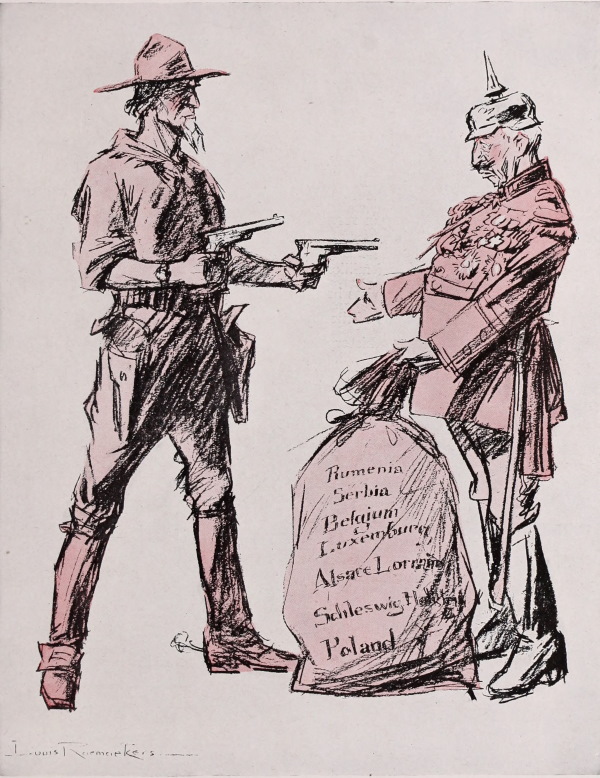 Rumenia
Serbia
Belgium
Luxemburg
Alsace Lorrain
Schleswig
Poland
Louis Raemaekers